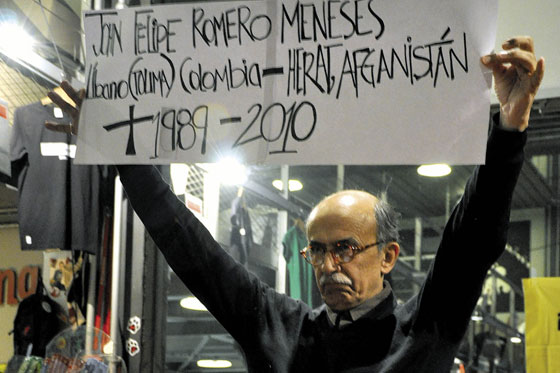 JOHN FELIPE ROMERO MENESES
Líbano (TOLIMA) Colombia - HERAT, AFGANISTÁN
✝ 1989 - 2010